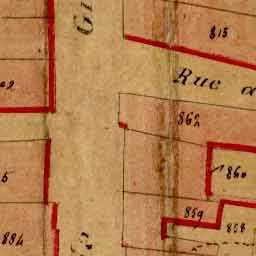 Gi
815
Rue d
862
860
859
858
884
5